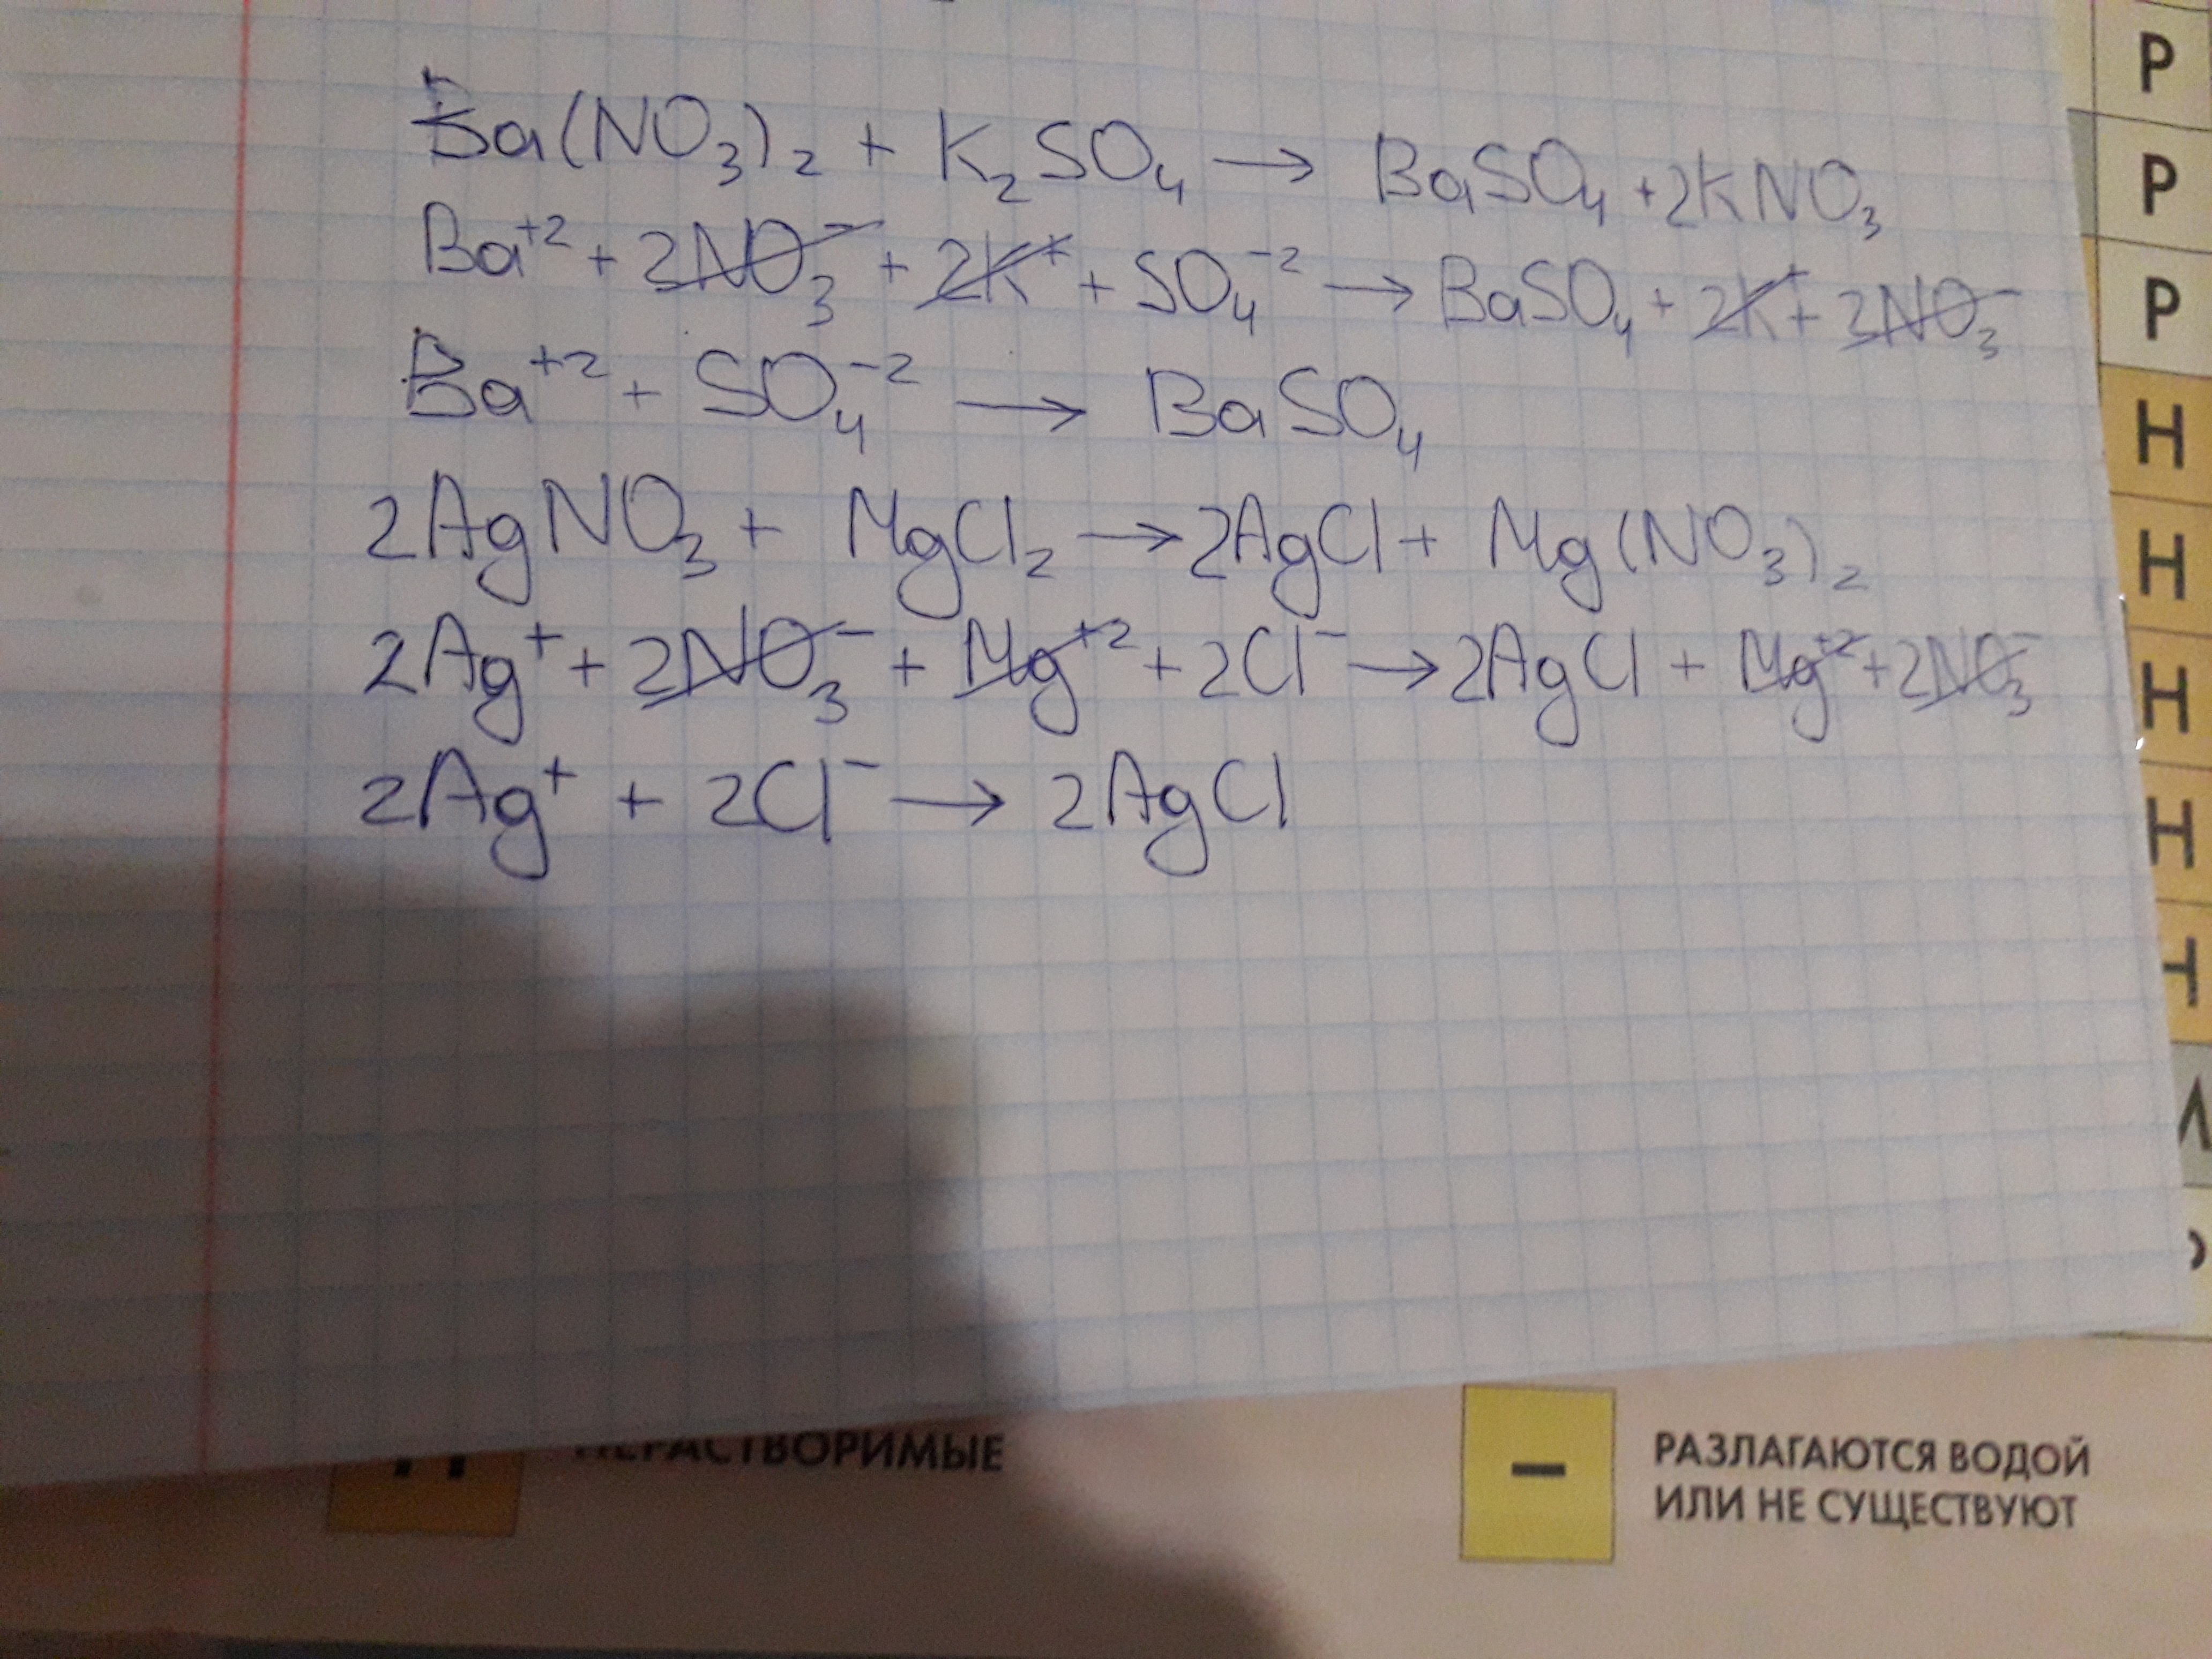 Ba(NO₃)₂ + K₂SO₄ → BaSO₄ + 2KNO₃
Ba⁺² + 2NO₃⁻ + 2K⁺ + SO₄⁻² → BaSO₄ + 2K⁺ + 2NO₃⁻
Ba⁺² + SO₄⁻² → BaSO₄
2AgNO₃ + MgCl₂ → 2AgCl + Mg(NO₃)₂
2Ag⁺ + 2NO₃⁻ + Mg⁺² + 2Cl⁻ → 2AgCl + Mg⁺² + 2NO₃⁻
2Ag⁺ + 2Cl⁻ → 2AgCl
Р
Р
Р
Н
Н
Н
Н
НЕРАСТВОРИМЫЕ
–
РАЗЛАГАЮТСЯ ВОДОЙ
ИЛИ НЕ СУЩЕСТВУЮТ